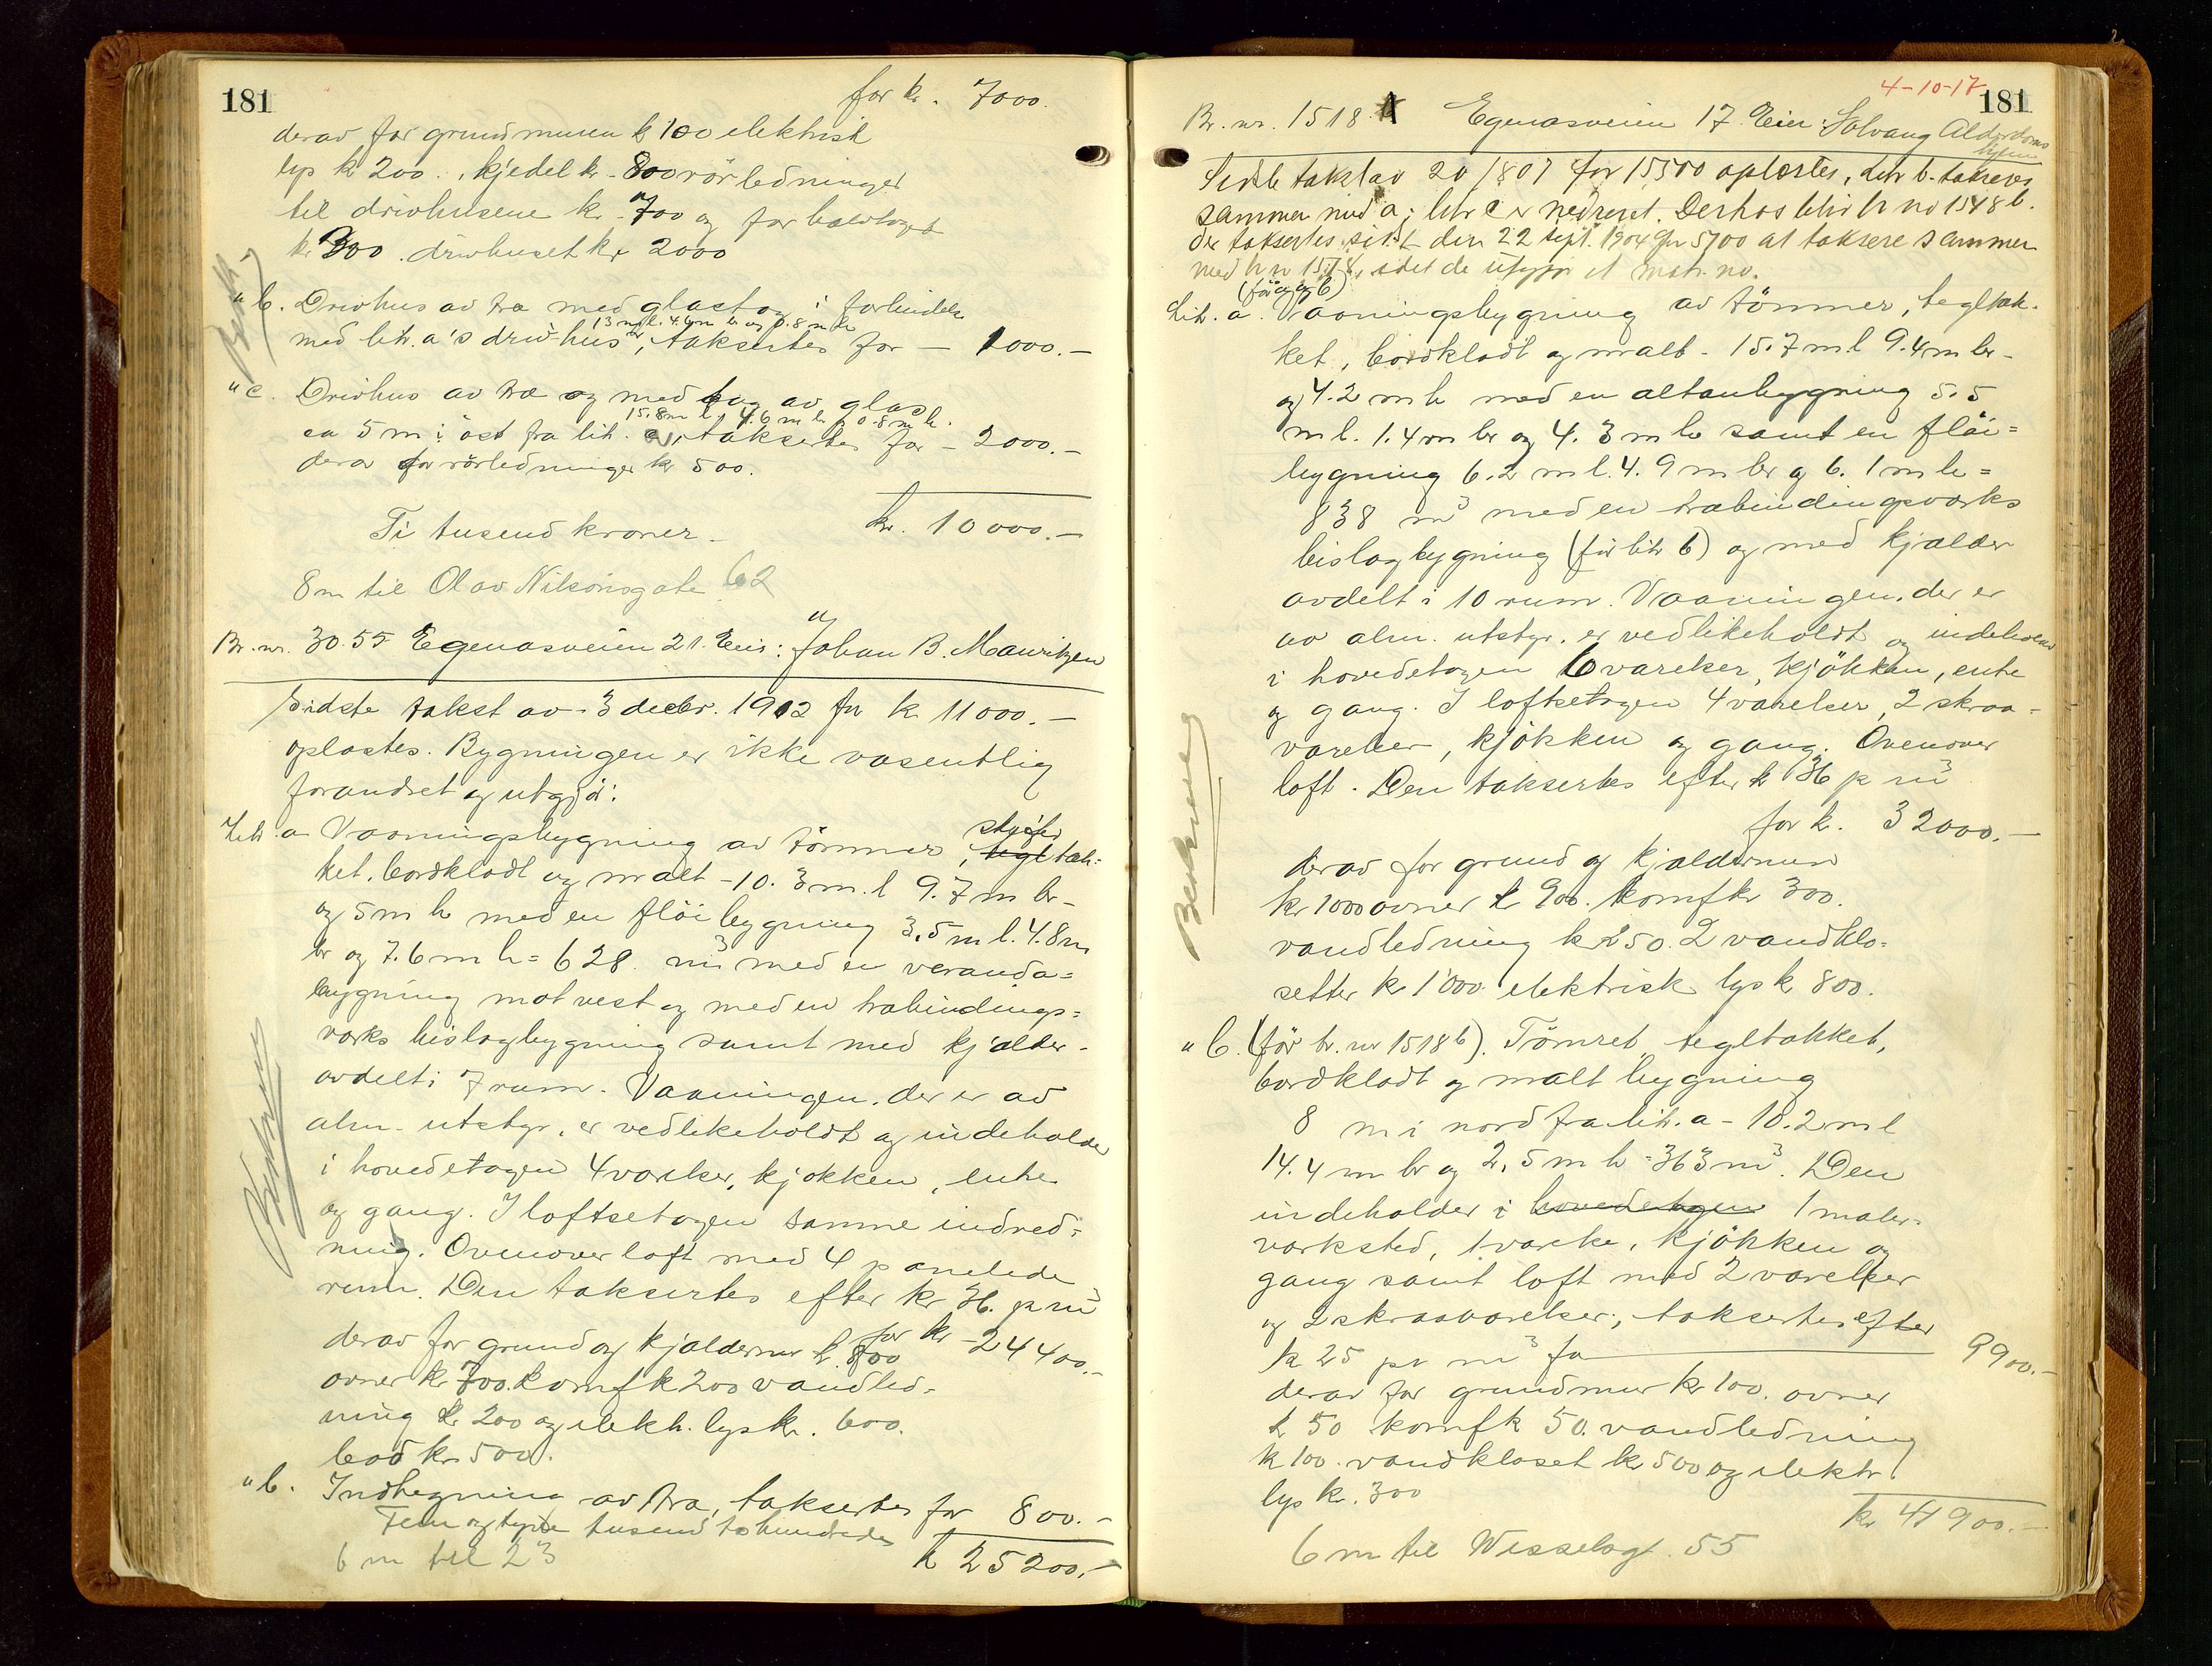 181
for kr. 7000.
derav for grundmuren k 100 elektrisk
lys kr 200. kjedel kr. 800 rörledninger
til drivhusene kr. 700 og for halvtaget
kr 300. drivhuset kr 2000
" b. Drivhus av træ med glastag i forbindelse
13 m l. 4.6 m br og 0.8 m h.
med litr. a's drivhus, taksertes for — 1000.—
" c. Drivhus av træ og med tag av glas
15.8 m l 4.6 m br og 0.8 m h.
ca 5 m i öst fra litr. a, taksertes for – 2000.—
derav for rörledninger kr 500.
Ti tusend kroner – kr. 10000.—
8 m til Olav Nilsönsgate 62
Br. nr. 3055 Egenæsveien 21. Eier: Johan B. Mauritzen
Sidste takst av 3 decbr. 1912 for kr 11000.—
oplæstes. Bygningen er ikke væsentlig
forandret og utgjör:
Litr. a Vaaningsbygning av tömmer, skifer
tegltæk-
ket, bordklædt og malt – 10.3 m. l 9.7 m br –
og 5 m h med en flöibygning 3.5 m l. 4.8 m
br og 7.6 m h = 628 m³ med en veranda=
bygning mot vest og med en træbindings=
værks bislagbygning samt med kjælder –
avdelt i 7 rum. Vaaningen, der er av
alm. utstyr, er vedlikeholdt og indeholder
i hovedetagen 4 værelser, kjökken, entre
og gang. I loftsetagen samme indred=
ning. Ovenover loft med 4 panelede
rum. Den taksertes efter kr 36. pr m³
for kr – 24400.–
derav for grund og kjældermur kr. 800
ovner kr 700. komf k 200 vandled=
ning kr 200 og elekh. lys kr. 600.
bad kr 500.
" b. Indhegning av træ, taksertes for 800.–
Fem og tyve tusend to hundrede
k 25200.–
6 m til 23
4-10-17
181
Br. nr. 1518 A Egenæsveien 17. Eier: Solvang Alderdoms
hjem
Sidste takst av 20/8 07 for 15500 oplæstes, litr b. takseres
sammen med a; litr c er nedrevet. Derhos blir br no 1548 b.
der taksertes sidst den 22 sept. 1904 for 5700 at taksere sammen
med br nr 1518, idet de utgjör et matr. no.
(för a og b)
Litr. a. Vaaningsbygning av tömmer, tegltæk-
ket, bordklædt og malt – 15.7 m l 9.4 m br –
og 4.2 m h med en altanbygning 5.5
m l. 1.4 m br og 4.3 m h samt en flöi=
bygning 6.2 m l. 4.9 m br og 6.1 m h =
838 m³ med en træbindingsværks
bislagbygning (för litr b) og med kjælder
avdelt i 10 rum. Vaaningen, der er
av alm. utstyr, er vedlikeholdt og indeholder
i hovedetagen 6 værelser, kjökken, entre
og gang. I loftsetagen 4 værelser, 2 skraa-
værelser, kjökken og gang. Ovenover
loft. Den taksertes efter kr 36 pr m³
for k. 32000.—
derav for grund og kjældermur
kr 1000 ovner kr 900. komf kr 300.
vandledning kr 250. 2 vandklo=
setter kr 1000 elektrisk lys k 800.
" b. (för br. nr 1518 b). Tömret, tegltækket,
bordklædt og malt bygning
8 m i nord fra litr. a – 10.2 m l
14.4 m br og 2.5 m h = 363 m³. Den
indeholder i hovedetagen 1 maler-
værksted, 1 værelse, kjökken og
gang samt loft med 2 værelser
og 2 skraaværelser; taksertes efter
k 25 pr m³ for 9900.–
derav for grundmur kr 100. ovner
k 50 komf k 50. vandledning
k 100. vandkloset kr 500 og elektr.
lys kr. 300
kr 41900.—
6 m til Wesselsgt. 55